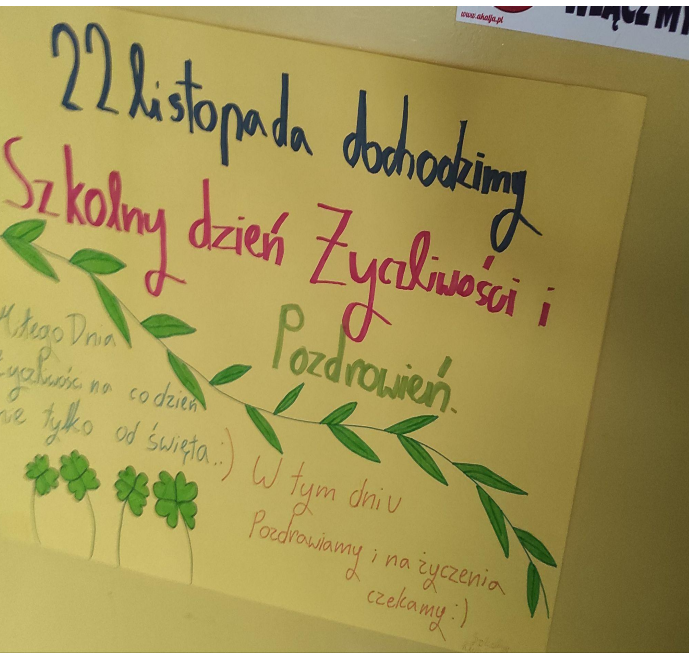 www.akalfa.pl
22 listopada dochodzimy
Szkolny dzień Życzliwości i
Pozdrowień.
Miłego Dnia
Życzliwości na codzień
nie tylko od święta.:)
W tym dniu
Pozdrawiamy i na życzenia
czekamy:)